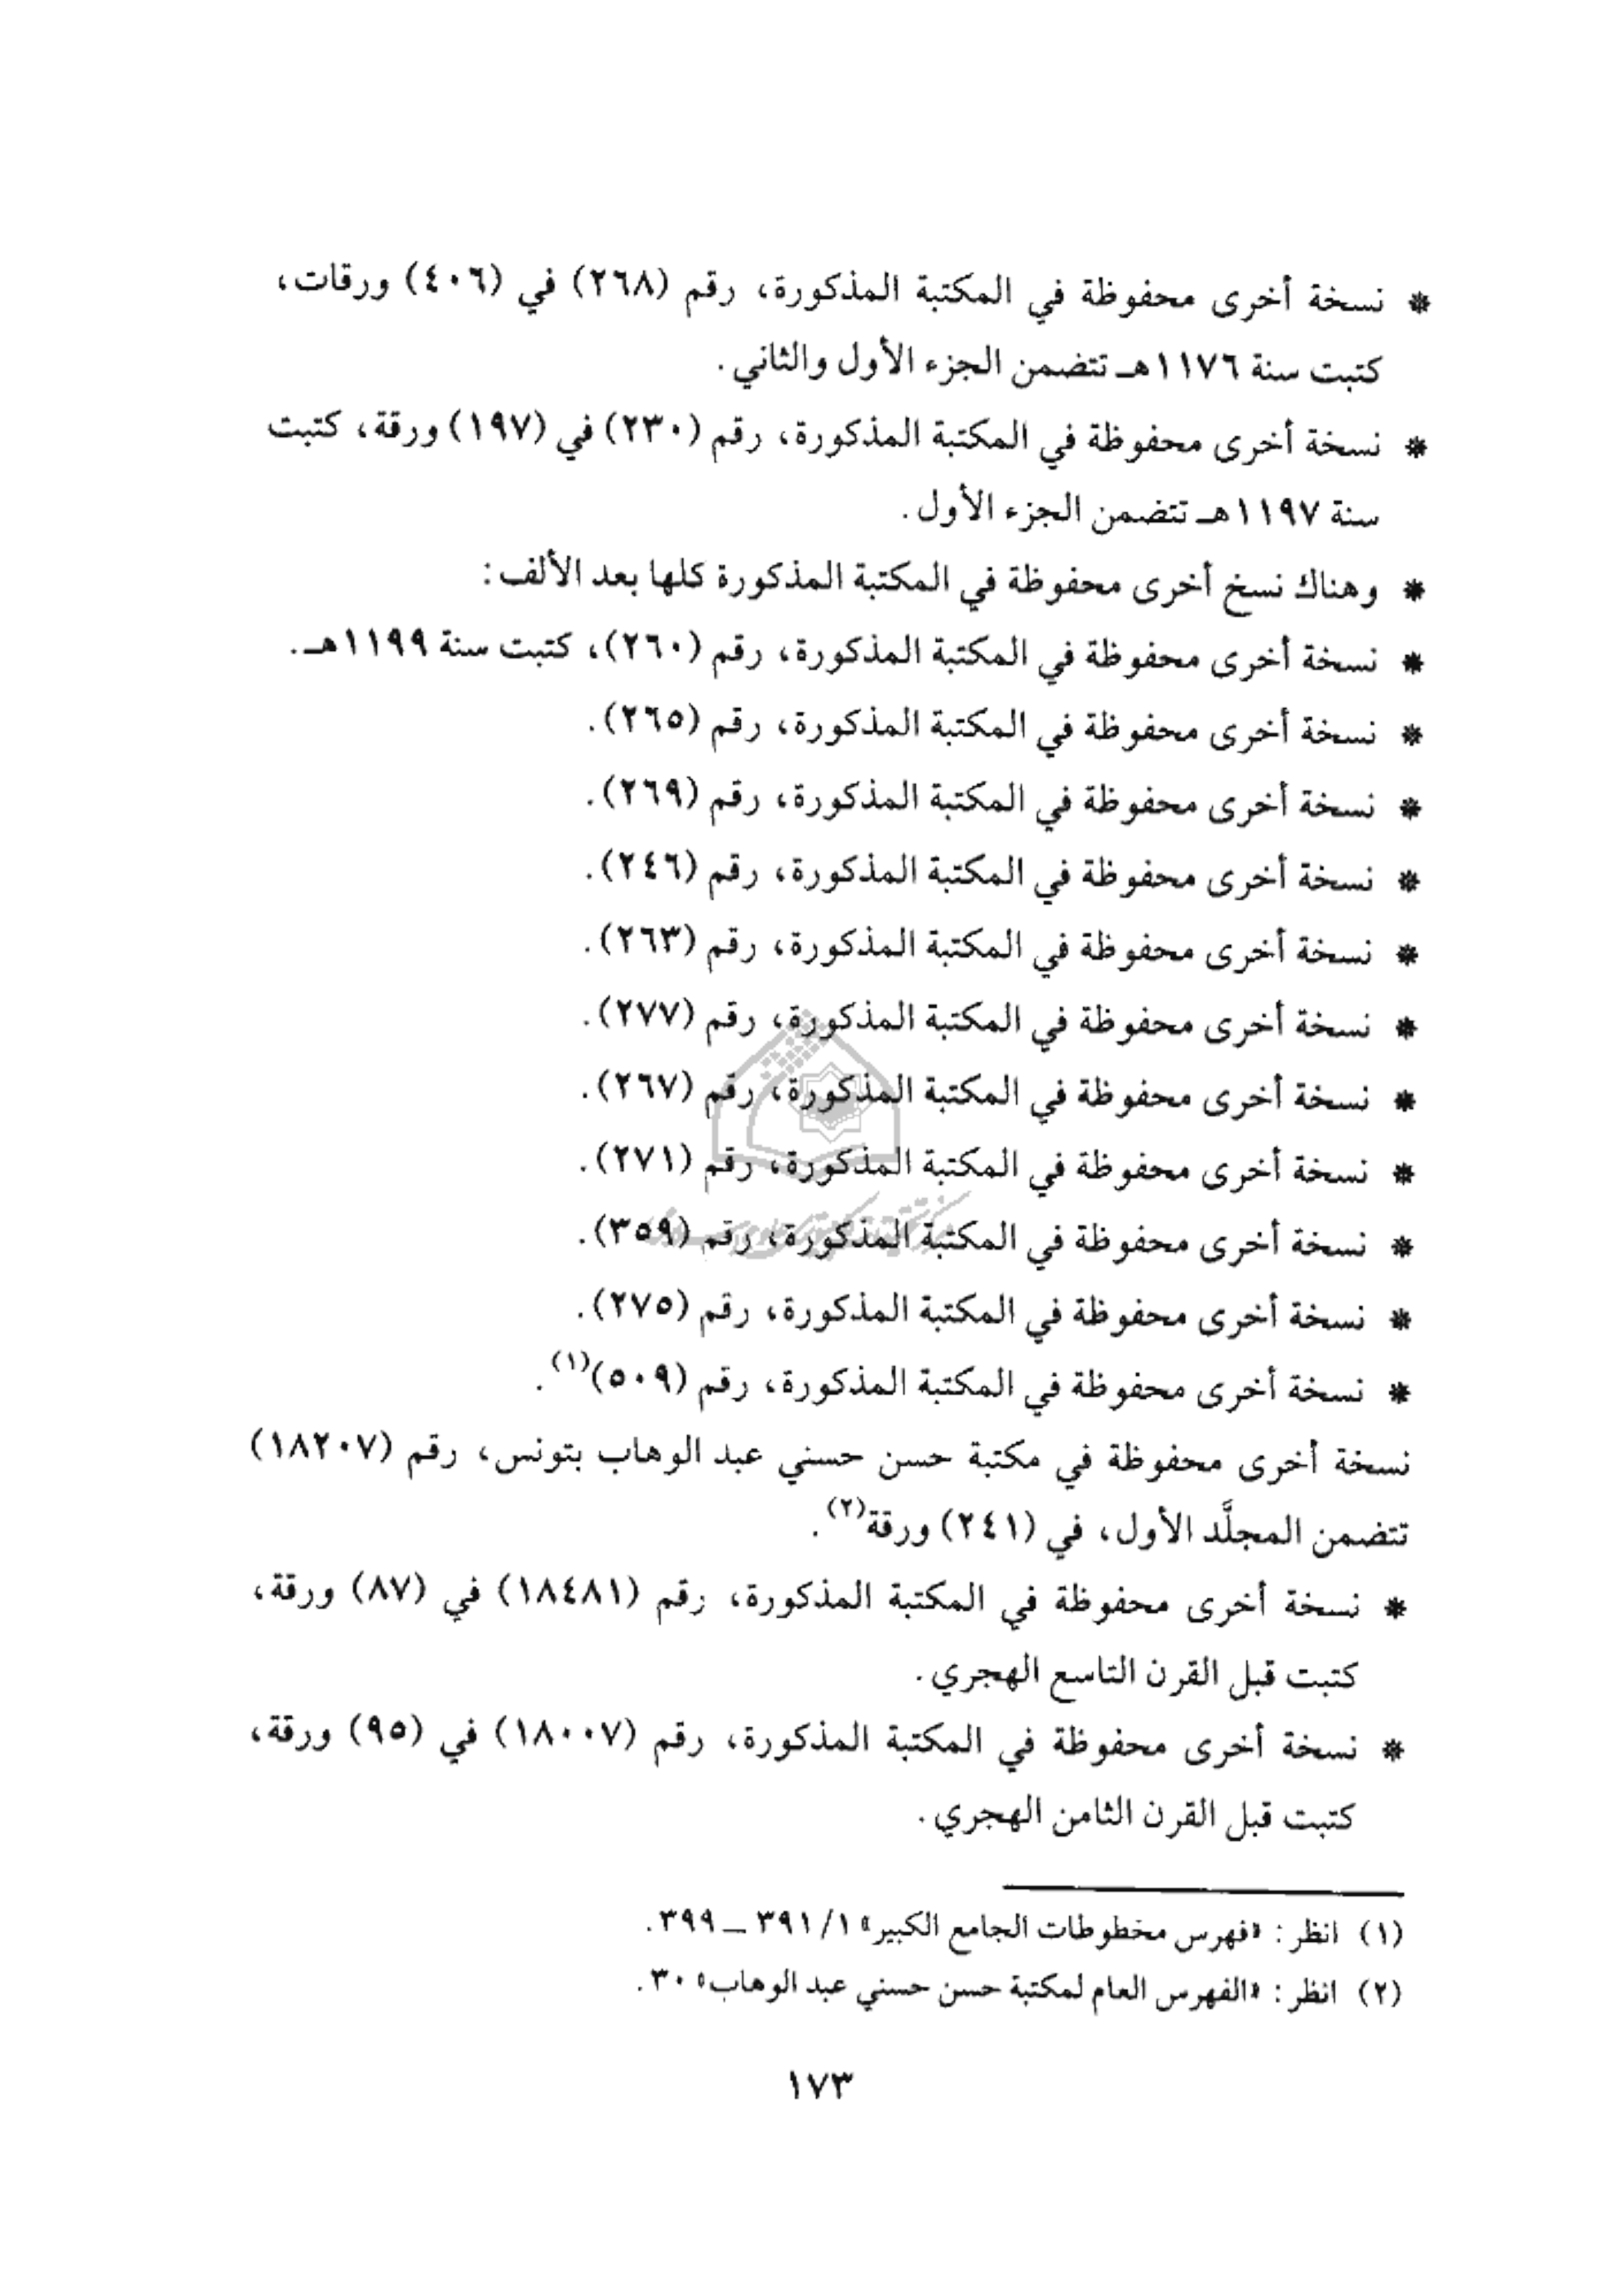 * نسخة أخرى محفوظة في المكتبة المذكورة، رقم (٢٦٨) في (٤٠٦) ورقات،
كتبت سنة ١١٧٦هـ تتضمن الجزء الأول والثاني.
* نسخة أخرى محفوظة في المكتبة المذكورة، رقم (٢٣٠) في (١٩٧) ورقة، كتبت
سنة ١١٩٧هـ تتضمن الجزء الأول.
* وهناك نسخ أخرى محفوظة في المكتبة المذكورة كلها بعد الألف:
* نسخة أخرى محفوظة في المكتبة المذكورة، رقم (٢٦٠)، كتبت سنة ١١٩٩هـ.
* نسخة أخرى محفوظة في المكتبة المذكورة، رقم (٢٦٥).
* نسخة أخرى محفوظة في المكتبة المذكورة، رقم (٢٦٩).
* نسخة أخرى محفوظة في المكتبة المذكورة، رقم (٢٤٦).
* نسخة أخرى محفوظة في المكتبة المذكورة، رقم (٢٦٣).
* نسخة أخرى محفوظة في المكتبة المذكورة، رقم (٢٧٧).
* نسخة أخرى محفوظة في المكتبة المذكورة، رقم (٢٦٧).
* نسخة أخرى محفوظة في المكتبة المذكورة، رقم (٢٧١).
* نسخة أخرى محفوظة في المكتبة المذكورة، رقم (٣٥٩).
* نسخة أخرى محفوظة في المكتبة المذكورة، رقم (٢٧٥).
* نسخة أخرى محفوظة في المكتبة المذكورة، رقم (٥٠٩)(١).
نسخة أخرى محفوظة في مكتبة حسن حسني عبد الوهاب بتونس، رقم (١٨٢٠٧)
تتضمن المجلَّد الأول، في (٢٤١) ورقة(٢).
* نسخة أخرى محفوظة في المكتبة المذكورة، رقم (١٨٤٨١) في (٨٧) ورقة،
كتبت قبل القرن التاسع الهجري.
* نسخة أخرى محفوظة في المكتبة المذكورة، رقم (١٨٠٠٧) في (٩٥) ورقة،
كتبت قبل القرن الثامن الهجري.
(١) انظر: «فهرس مخطوطات الجامع الكبير» ١/ ٣٩١ ــ ٣٩٩.
(٢) انظر: «الفهرس العام لمكتبة حسن حسني عبد الوهاب» ٣٠.
١٧٣